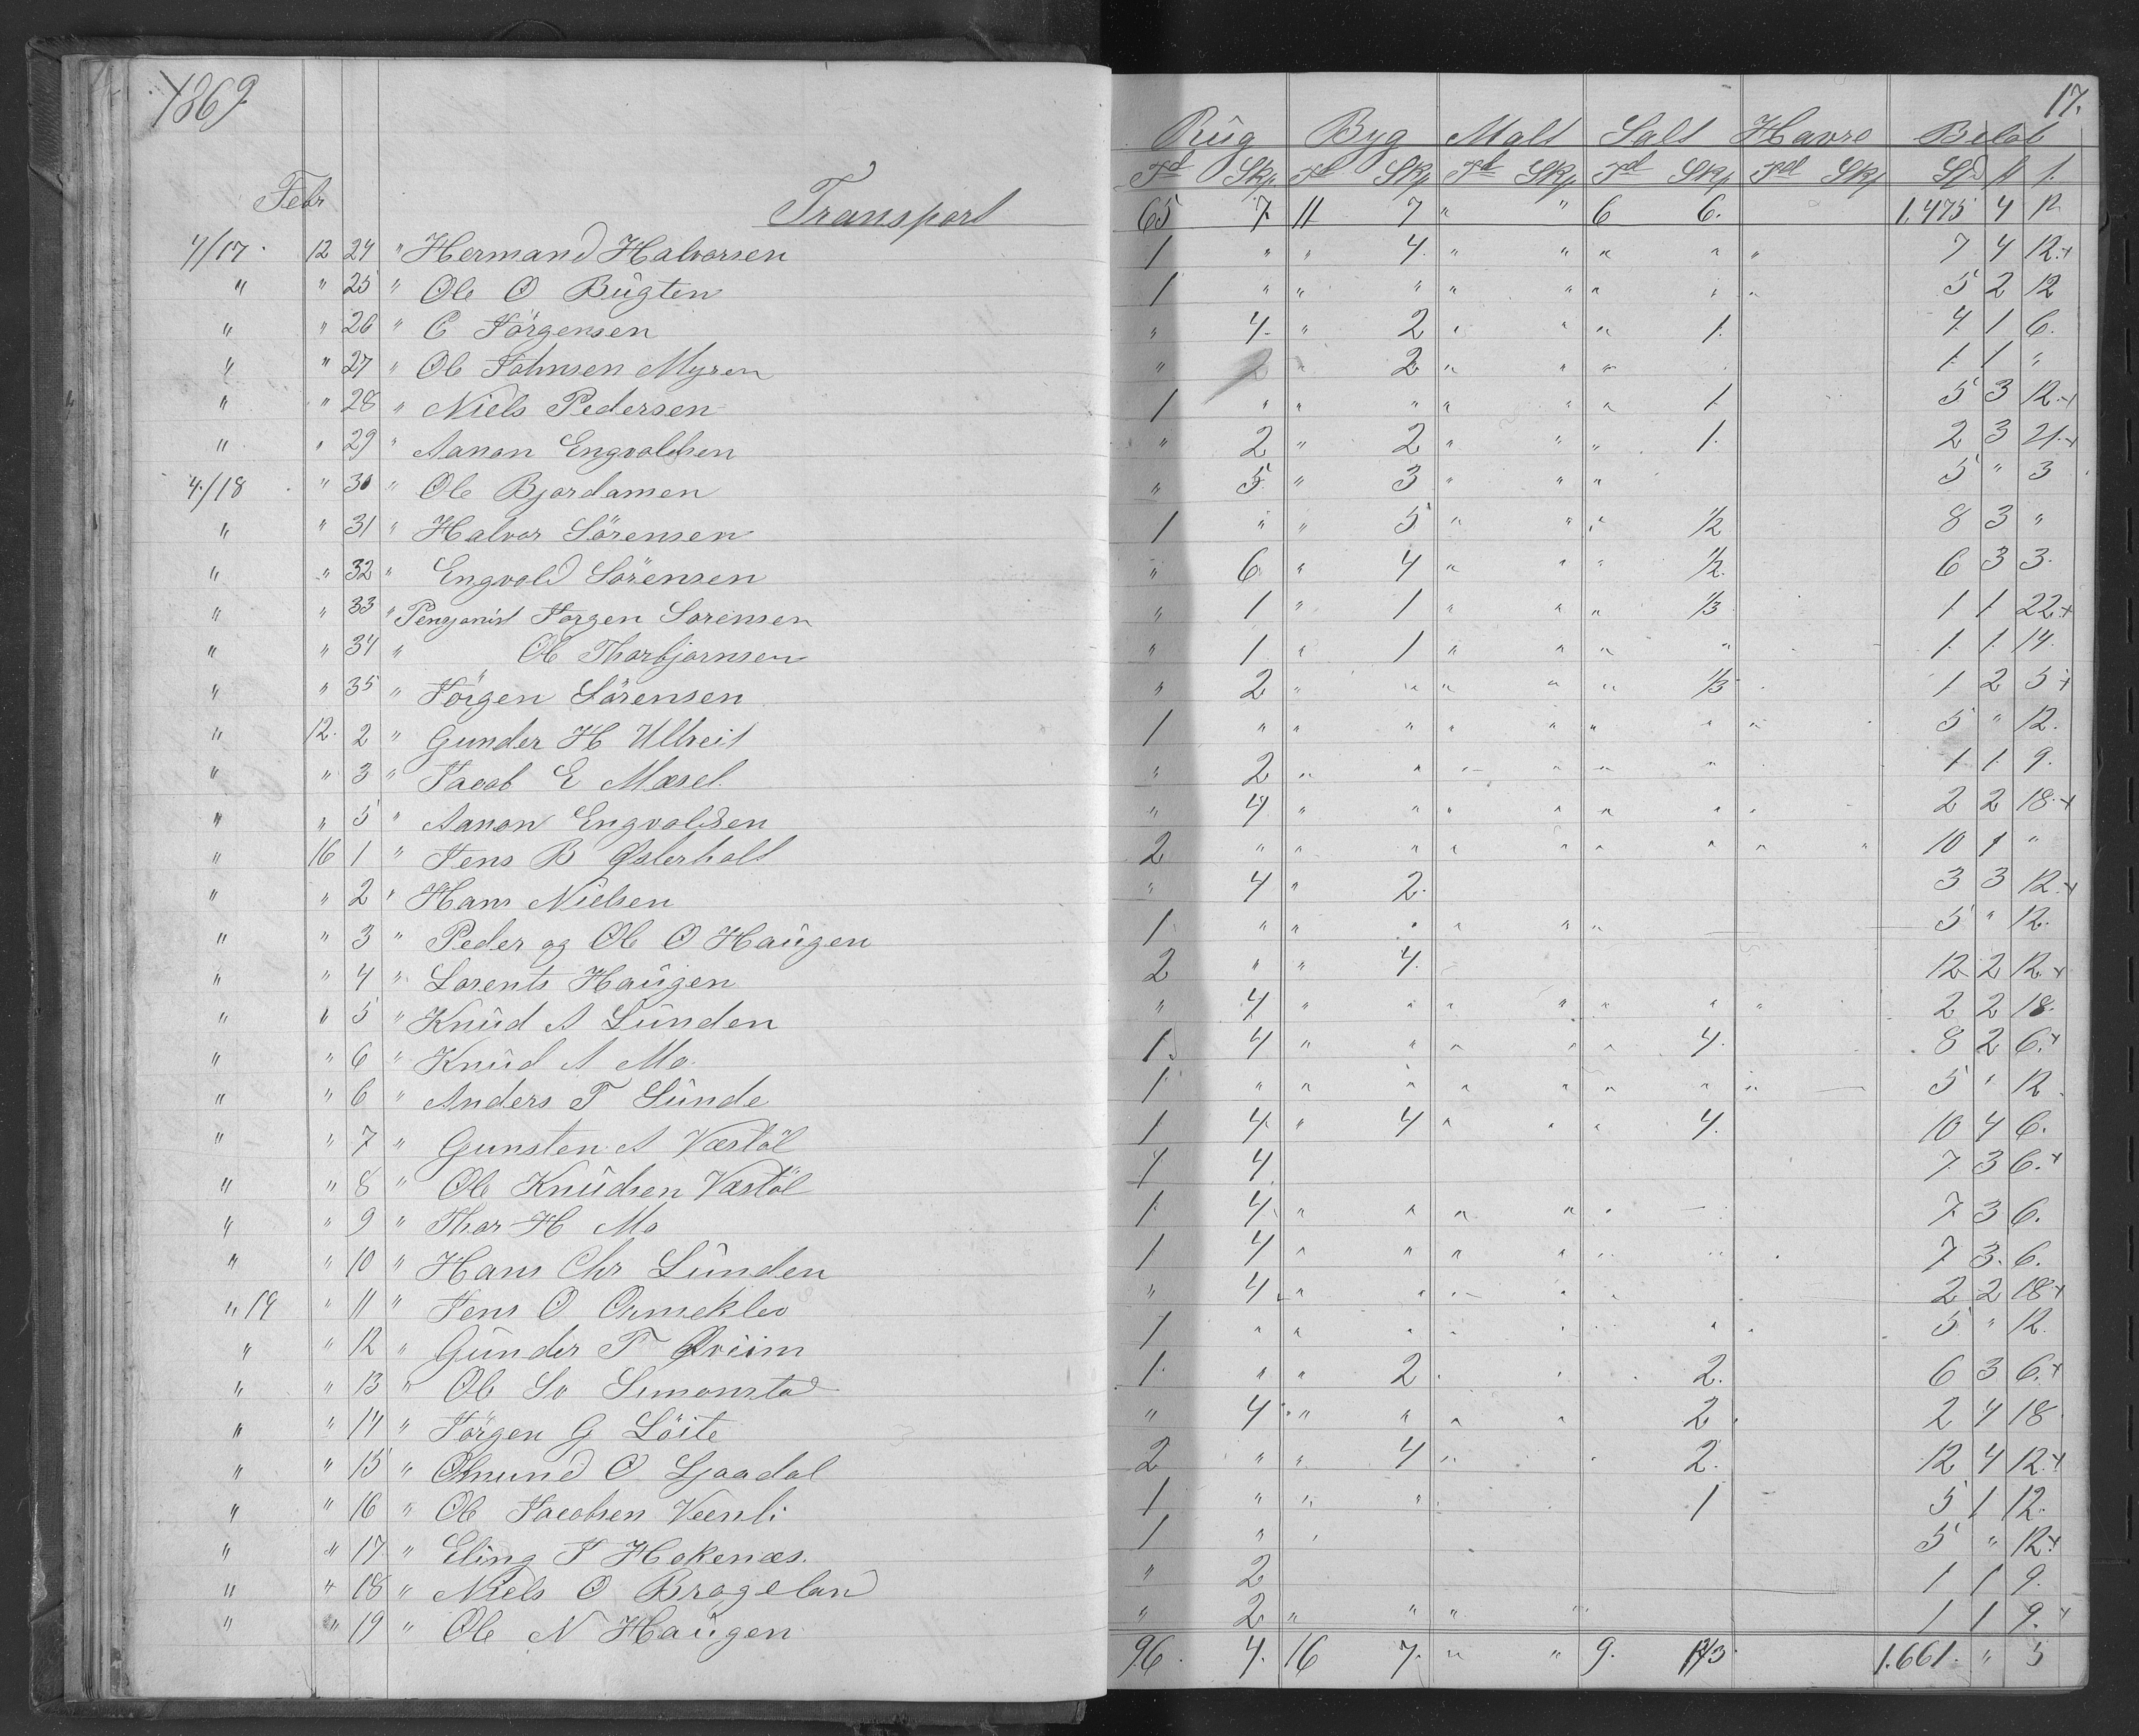 1869 17.
Rüg Byg Malt Salt Havre Beløb
Febr Td Skp. Td Skp Td Skp. Td Skp Td Skp Spd
Transport 65 7. 11 7 " " 6 6. 1,475 4 12
4/17. 12 24 " Hermand Halvorsen 1 " " 4. " " " " " 7 4 12.+
" " 25 " Ole O Bügten 1 " " " " " " " " 5 2 12
" " 26 " C Jörgensen " 4. " 2 " " " 1. 4. 1 6.
" " 27 " Ole Johnsen Myren " 2 " 2 " " " 1. 1 "
" " 28 " Niels Pedersen 1 " " " " " " 1. 5 3 12.+
" " 29 " Aanon Engvoldsen " 2 " 2 " " " 1. 2 3 21.+
4./18 " 30 " Ole Bjordamen " 5 " 3 " " " 5 " 3
" " 31 " Halvor Sörensen 1 " " 5 " " " 1/2 8 3 "
" " 32 " Engvold Sörensen " 6 " 4 " " " 1/2. 6 3 3.
" " 33 " Pensjonist Jorgen Sorensen " 1 " 1 " " " 1/3 1. 1. 22.+
" " 34 " Ole Thorbjornsen " 1. " 1 " " " " 1. 1. 14.
" " 35 " Jörgen Sörensen " 2 " " " " " 1/3 1 2 5+
" 12. 2 " Gunder H Ulltveit 1 " " " " " " " " 5 " 12.
" " 3 " Jacob E Mæsel. " 2 " " " " " " 1. 1. 9.
" " 5 " Aanon Engvoldsen " 4 " " " " " " " 2 2 18.+
" 16 1 " Jens B Østerholt 2 " " " " " " " " " 10 1 "
" " 2 " Hans Nielsen " 4 " 2. 3 3 12.+
" " 3 " Peder og Ole O Haügen 1 " " " " " " 5 " 12.
" " 4 " Lorents Haügen 2 " " 4. 12 2 12.+
" " 5 " Knüd A Lünden " 4 " " " " " " " 2 2 18.
" " 6 " Knüd A Mo. 1. 4 " " " " " 4. 8 2 6.+
" " 6 " Anders T Lünde 1. " " " " " " " " 5 " 12.
" " 7 " Gunsten A Væstöl 1 4. " 4 " " " 4. 10 4 6.
" " 8 " Ole Knüdsen Væstöl 1 4. 7. 3 6.+
" " 9 " Thor H Mo 1. 4. " " " " " 7. 3 6.
" " 10 " Hans Chr Lünden 1 4 " " " " " 7 3. 6.
" 19 " 11 " Jens O Ormeklev " 4 " " " " " 2 2 18+
" " 12 " Günder T Qviim 1 " " " " " " " " 5 " 12.
" " 13 " Ole Sv Simonstad 1. " " 2 " " " 2. 6 3 6.+
" " 14 " Jörgen G Löite " 4 " " " " 2 2 4 18
" " 15 " Omund O Ljaadal 2 " " 4 " " 2. 12 4 12.+
" " 16 " Ole Jacobsen Veenli 1 " " " 1 5 1 12.
" " 17. " Eling T Hokenæs. 1 " " 5 " 12.+
" " 18 " Niels O Brogeland " 2 1 1 9.
" " 19 " Ole N Haügen " 2 " " " " 1 1 9.+
96. 4. 16 7. " " 9. 1.661. " 3